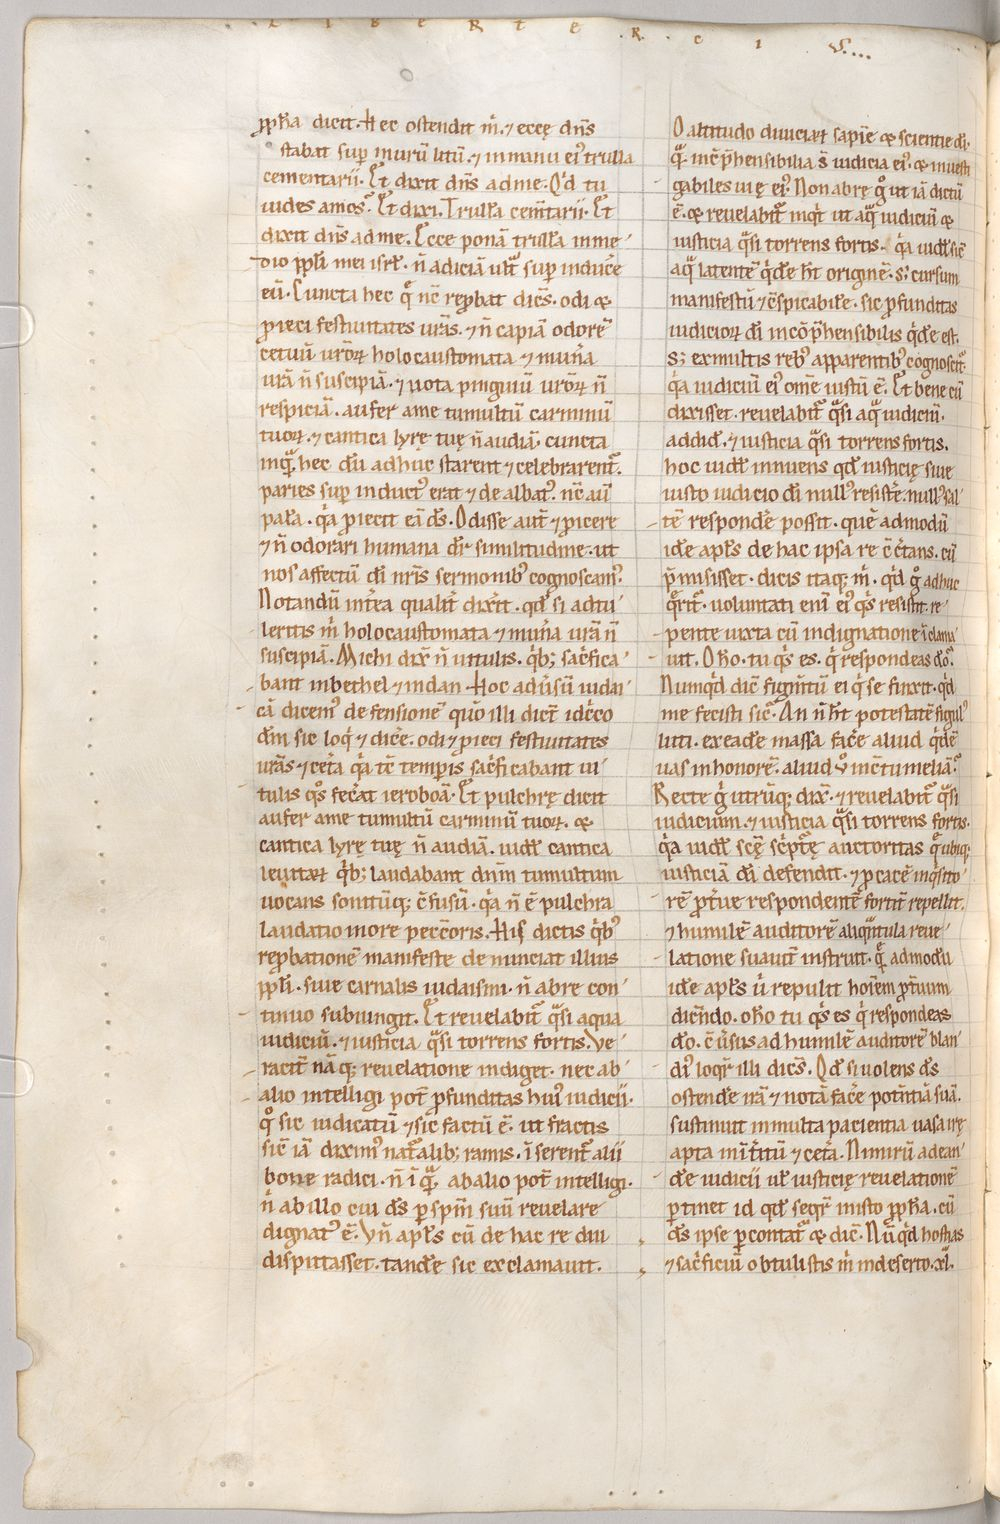 LIBER TERCIUS
ppħa dicit. Hec ostendit m̄. ⁊ ecce dn̄s
stabat sup murū litū. ⁊ in manu ei᾽ trulla
cementarii. Et dixit dn̄s ad me. Qd tu
uides amos. Et dixi. Trullā cem̄tarii. Et
dixit dn̄s ad me. Ecce ponā trullā in me
dio ppli mei isrl. n̄ adiciā ult͛ sup inducēe
eū. Cuncta hec q̄ nc̄ reprobat dicēs. odi ⁊
pieci festiuitates urās. ⁊ n̄ capiā odorē
cetuū urōꝝ holocaustomata ⁊ mun̄a
urā n̄ suscipiā. ⁊ uota pinguiū urōꝝ n̄
respiciā. aufer a me tumultū carminū
tuoꝝ. ⁊ cantica lyrę tuę n̄ audiā. cuncta
inqͣ hec dū adhuc starent ⁊ celebrarent᷑.
paries sup induct᾽ erat ⁊ dealbat᾽. nc̄ aū
palā. qͥa piecit eā ds̄. Odisse aut̄ ⁊ picere
⁊ n̄ odorari humana dr̄ similitudine. ut
nos affectū di nr̄is sermonib᾽ cognoscam᾽.
Notandū int̄ea qualit̄ dixit. qd si adtu
leritis m̄ holocaustomata ⁊ mun̄a urā n̄
suscipiā. Michi dix̄ n̄ uitulis. qͥb; sac̄fica
bant in bethel ⁊ in dan. Hoc adusū iudai
cā dicem᾽ defensionē quō illi dict̄ idcͥco
dm̄ sic loqͥ ⁊ dic̄e. odi ⁊ pieci festiuitates
urās ⁊ cet̄a qͥa tē temporis sac̄ficabant ui
tulis qͦs fec̄at ieroboā. Et pulchrę dicit
aufer a me tumultū carminū tuoꝝ. ⁊
cantica lyrę tuę n̄ audiā. uidl cantica
leuitaꝝ qͥb; laudabant dnm̄ tumultum
uocans sonitūq; c̄fusū. qͥa n̄ ē pulchra
laudatio in ore pecc̄oris. His dictis qͥb᾽
reprobationē manifeste denunciat illius
ppli. siue carnalis iudaismi. n̄ ab re con
tinuo subiungit. Et reuelabit᷑ qͣsi aqua
iudiciū. ⁊ iusticia qͣsi torrens fortis. Ve
racit̄ nāq; reuelatione indiget. nec ab
alio intelligi pot̄ profunditas hui᾽ iudicii.
qͦ sic iudicatū ⁊ sic factū ē. ut fractis
sic̄ iā dixim᾽ nat͛alib; ramis. īserent᷑ alii
bone radici. n̄ īqͣ ab alio pot̄ intelligi.
n̄ ab illo cui ds̄ p spm̄ suū reuelare
dignat᾽ ē. Vn̄ apls cū de hac re diu
disputasset. tandē sic exclamauit.
O altitudo diuiciaꝝ sapiē ⁊ scientie di.
qͣ inc̄p̄hensibilia s̄ iudicia ei᾽. ⁊ inuesti
gabiles uię ei᾽. Non ab re gͦ ut iā dictū
ē. ⁊ reuelabit᷑ inqͥt ut aqͣ iudiciū ⁊
iusticia qͣsi torrens fortis. qͥa uidl sic̄
aqͣ latentē qͥdē ht̄ originē. s; cursum
manifestū ⁊ c̄spicabilē. sic profunditas
iudicioꝝ di incōp̄hensibilis qͥdē est.
s; ex multis reb᾽ apparentib᾽ cognoscit᷑
qͥa iudiciū ei᾽ om̄e iustū ē. Et bene cū
dixisset. reuelabit᷑ qͣsi aqͣ iudiciū.
addid. ⁊ iusticia qͣsi torrens fortis.
hoc uidl innuens qd iusticię siue
iusto iudicio di null᾽ resistē. null᾽ sal
tē respondē possit. quē admodū
idē apls de hac ipsa re c̄c̄tans. cū
p̄misisset. dicis itaq; m̄. qͥd gͦ adhuc
qͣrit᷑. uoluntati enī ei᾽ qͥs resistit. re
pente iuxta cū indignatione īclama
uit. O ho. tu qͥs es. q̄ respondeas dō.
Numqͥd dic̄ figm̄tū ei q̄ se finxit. qͥd
me fecisti sic̄. An n̄ ht̄ potestatē figul᾽
luti. ex eadē massa fac̄e aliud qͥdē
uas in honorē. aliud ū in c̄tumeliā.
Recte gͦ utrūq; dix̄. ⁊ reuelabit᷑ qͣsi
iudicium. ⁊ iusticia qͣsi torrens fortis.
qͥa uidl scę sc̄ptę auctoritas q̄ ubiq;
iusticiā di defendit. ⁊ procacē inqͥsito
rē prot̄ue respondentē fortit̄ repellit.
⁊ humilē auditorē aliqͣntula reue
latione suauit̄ instruit. q̄ admodū
idē apls ū repulit hoīem prot̄uum
dicēdo. o ho tu qͥs es q̄ respondeas
dō. c̄uersus ad humilē auditorē blan
di᾽ loqͥr illi dicēs. Qd si uolens ds̄
ostendē irā ⁊ notā fac̄e potn̄tiā suā.
sustinuit in multa pacientia uasa irę
apta int̄itū ⁊ cet̄a. Nimirū ad ean
dē iudicii ul iusticię reuelationē
ptinet id qd seqͥr in isto ppħa. cū
ds̄ ipse pcontat᷑ ⁊ dic̄. Nūqͥd hostias
⁊ sac̄ficiū obtulistis m̄ in deserto. xl.